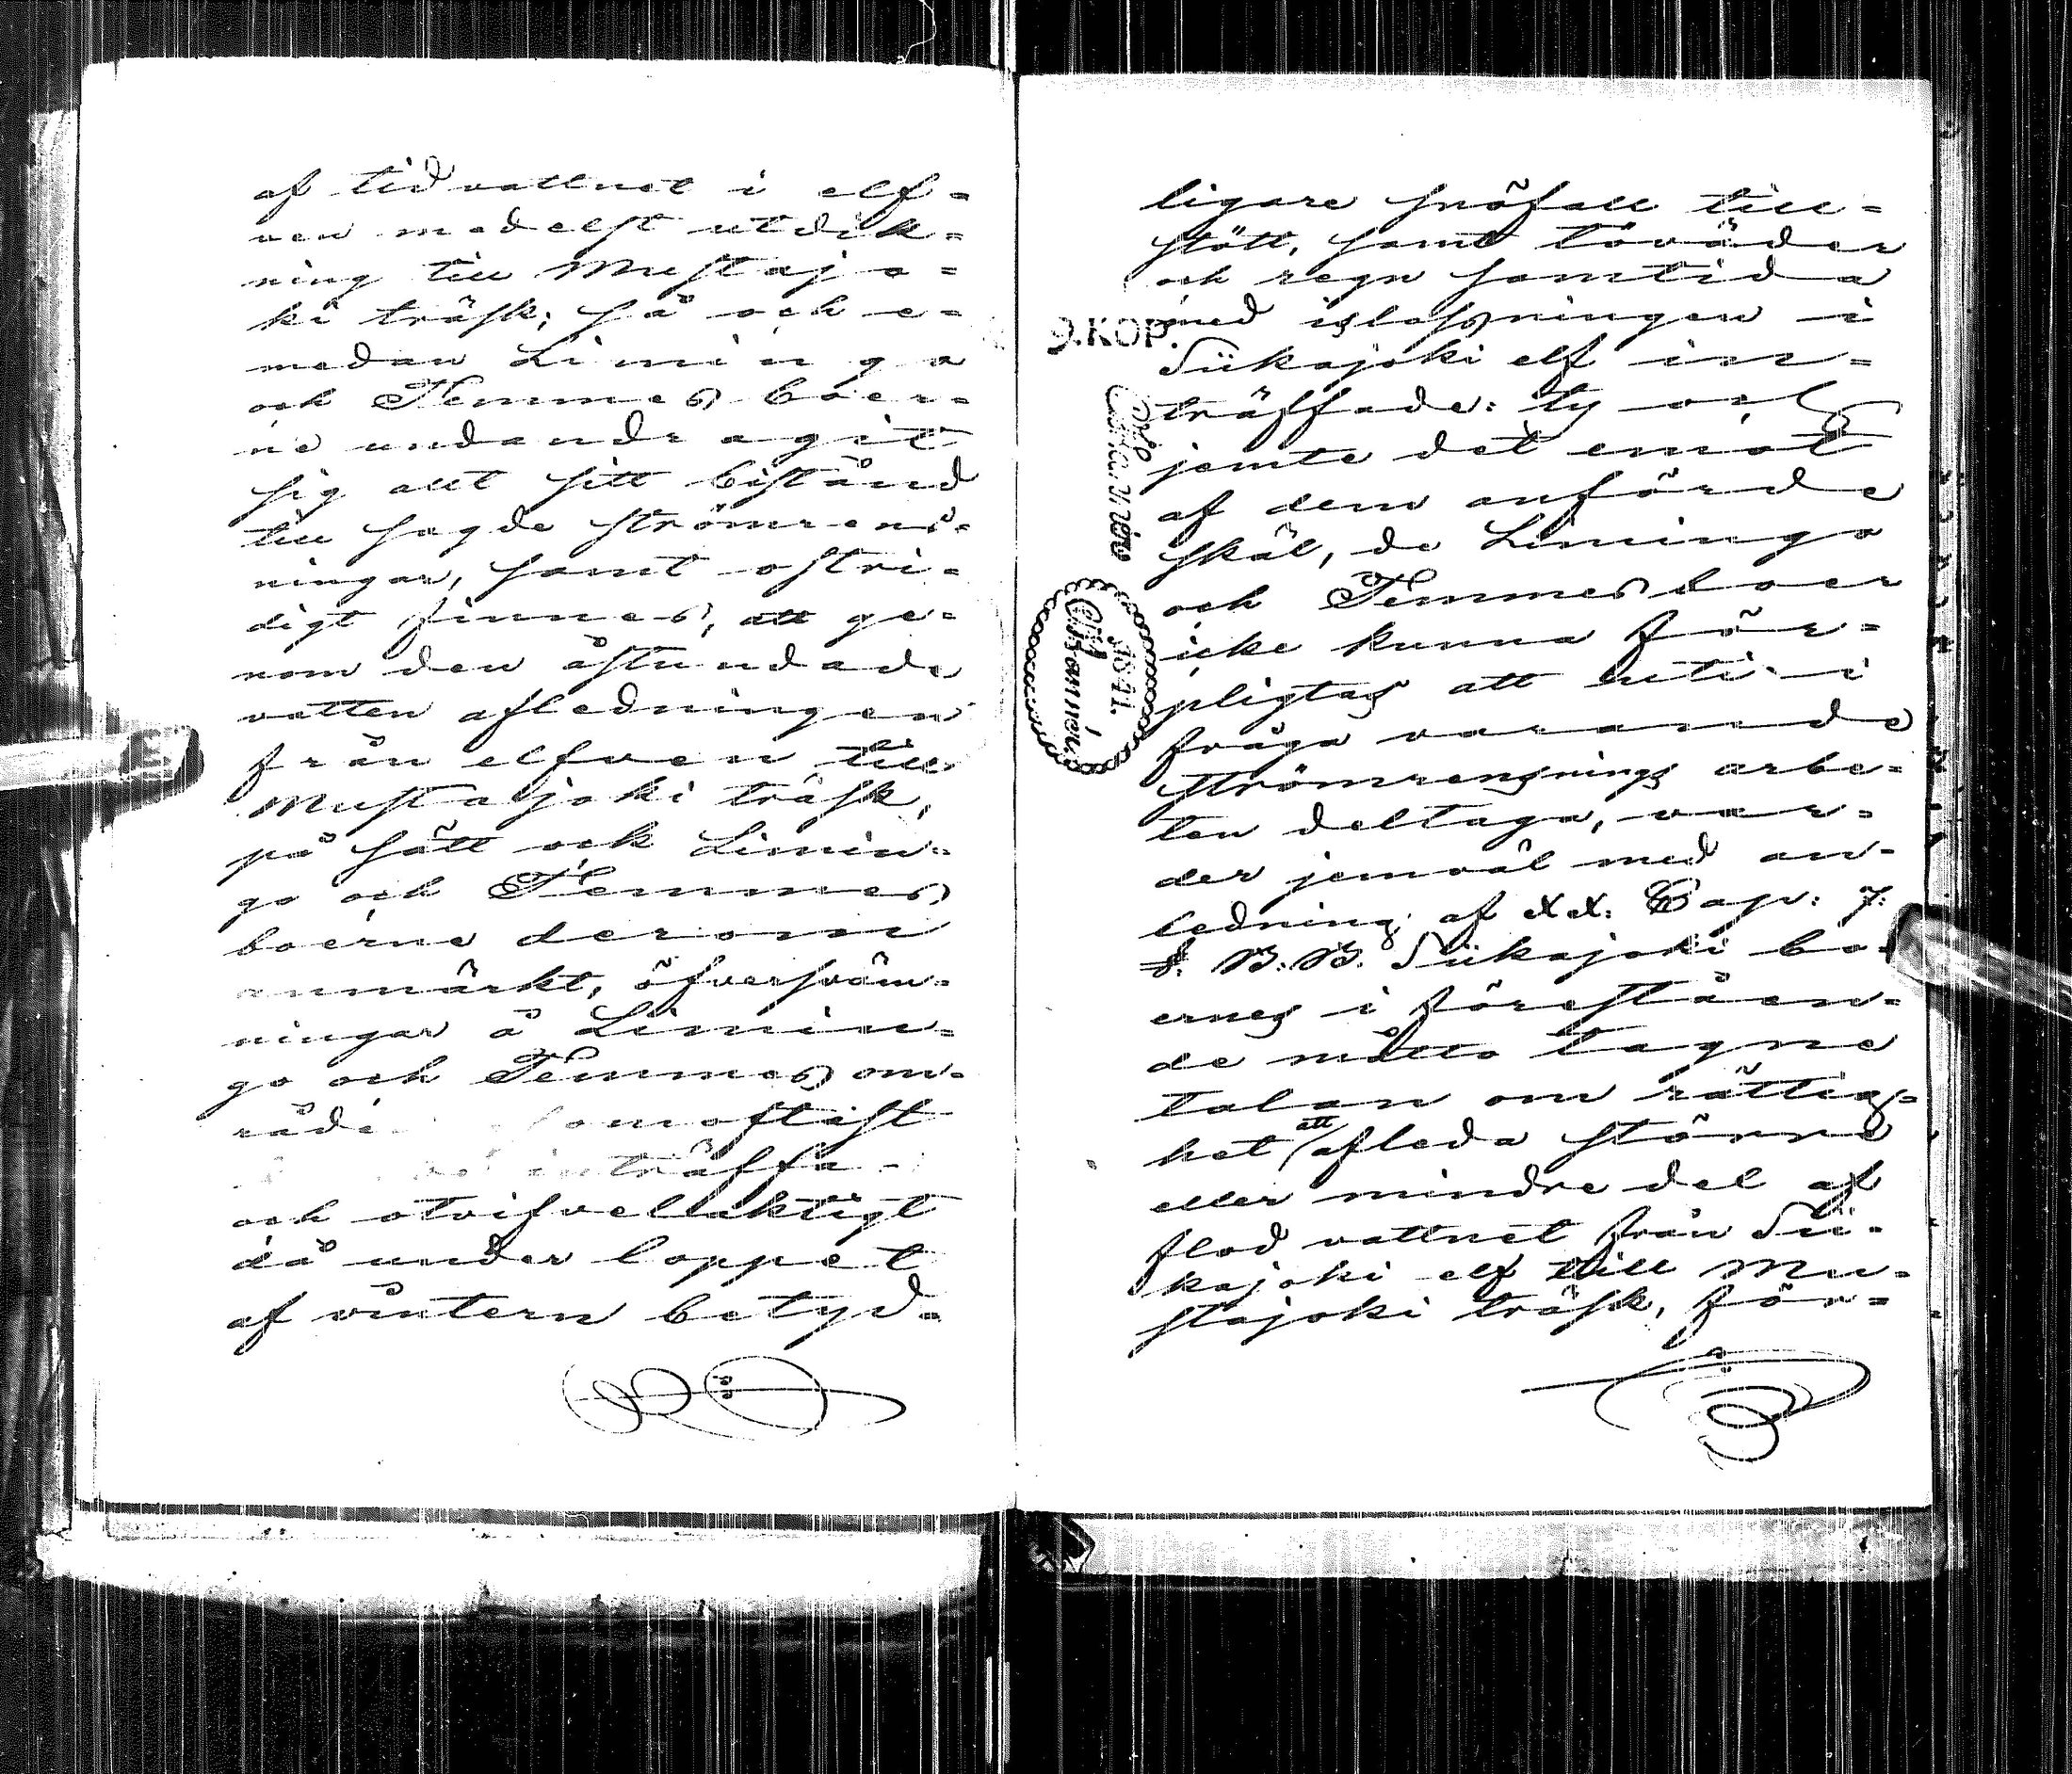 af tidvattnet i elf=
ven medelst utdik=
ning till Mustajo=
ki träsk; så och e=
medan Limingo
och Temmes boer=
ne undandragit
sig allt sitt bistånd
till sagde strömrens=
ningar, samt ostri=
digt finnes, att ge=
nom den åstundade
vatten afledningen
från elfven till
Mustajoki träsk,
på sätt ock Limin=
go och Temmes
boerne derom
anmärkt, öfversväm=
ningar å Limin=
go och Temmes om=
råde somoftast
inträffa
och otvifvellaktigt
då under loppet
af vintern betyd=
ligare snöfall till=
stött, samt töväder
och regn samtida
med islossningen i
Siikajoki elf in=
träffade: ty och
jemte det emot
af dem anförde
skäl, de Limingo
och Temmes boer
icke kunna för=
pligtas att uti i
fråga varande
strömrensnings arbe=
ten deltaga, var=
der jemväl med an=
ledning af XX. Cap: 7:
§. B.B. Siikajoki bo=
ernes i föreståen=
de måtto tagne
talan om rättig=
het att afleda större
eller mindre del af
flod vattnet från Sii=
kajoki elf till Mu=
stajoki träsk, för=
9.KOP.
1841.